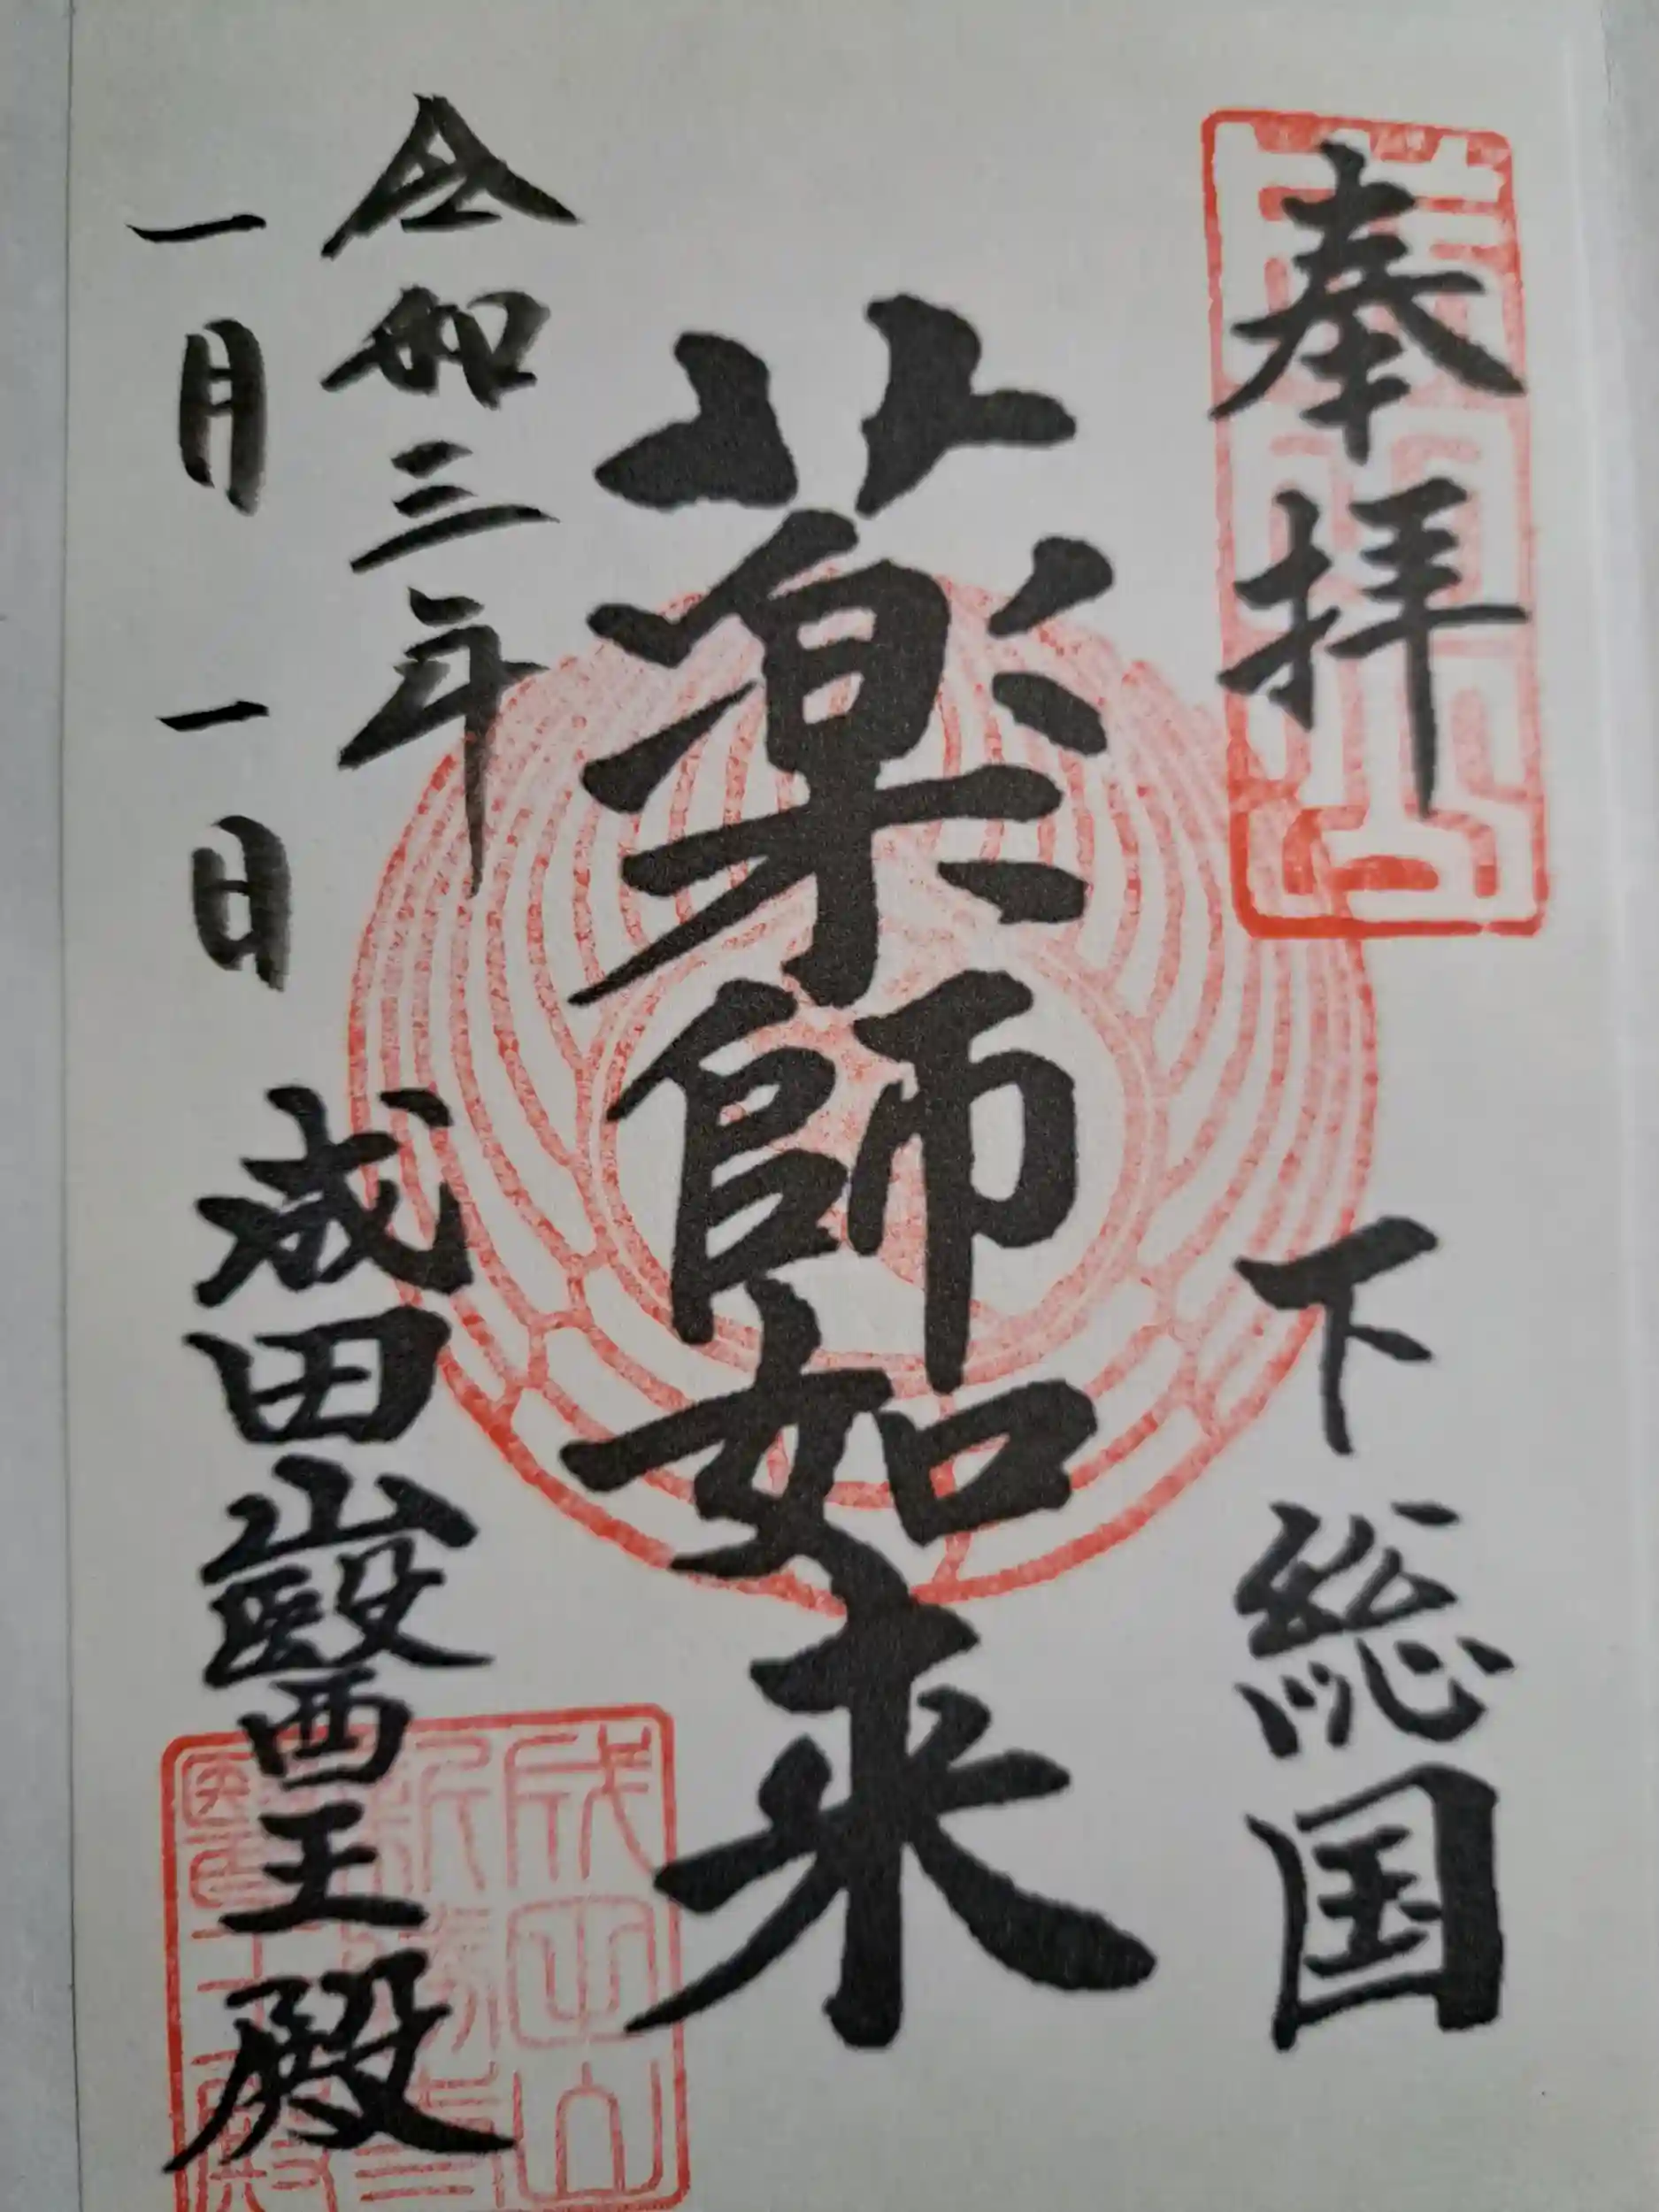 奉拝
下総国
薬師如来
令和三年
一月一日
成田山醫王殿